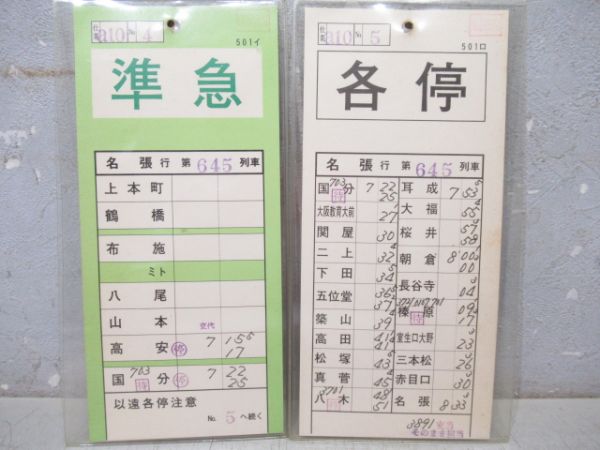 仕業 310 No 4
501イ
準急
名張行 第 645 列車
上本町
鶴橋
布施
ミト
八尾
山本
交代
高安 7 15 17
703
国分 待 7 22 25
以遠各停注意
No. 5 へ続く
仕業 310 No 5
501ロ
各停
名張行 第 645 列車
703
国分 待 7 22 25
大阪教育大前 27
関屋 30
二上 32
下田 34
五位堂 36 37
築山 39
高田 41 41
松塚 43
真菅 45
3701
八木 48 51
耳成 7 53
大福 55
桜井 57 58
朝倉 8 00 00
長谷寺 04
榛原 待 09 17
室生口大野 23
三本松 26
赤目口 30
名張 8 33
3891